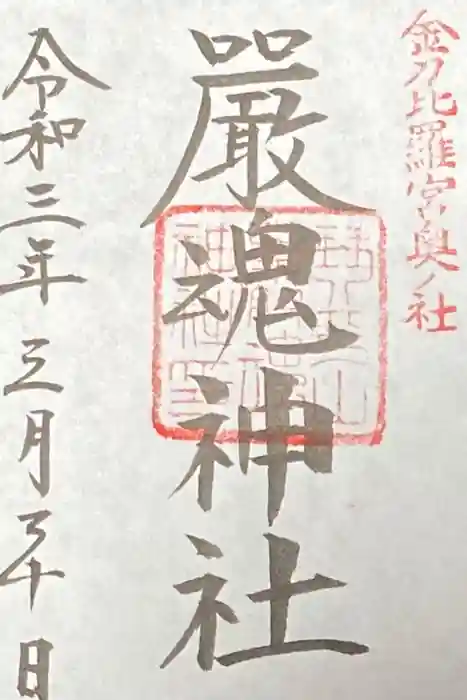 金刀比羅宮奥ノ社
嚴魂神社
令和三年三月三十日